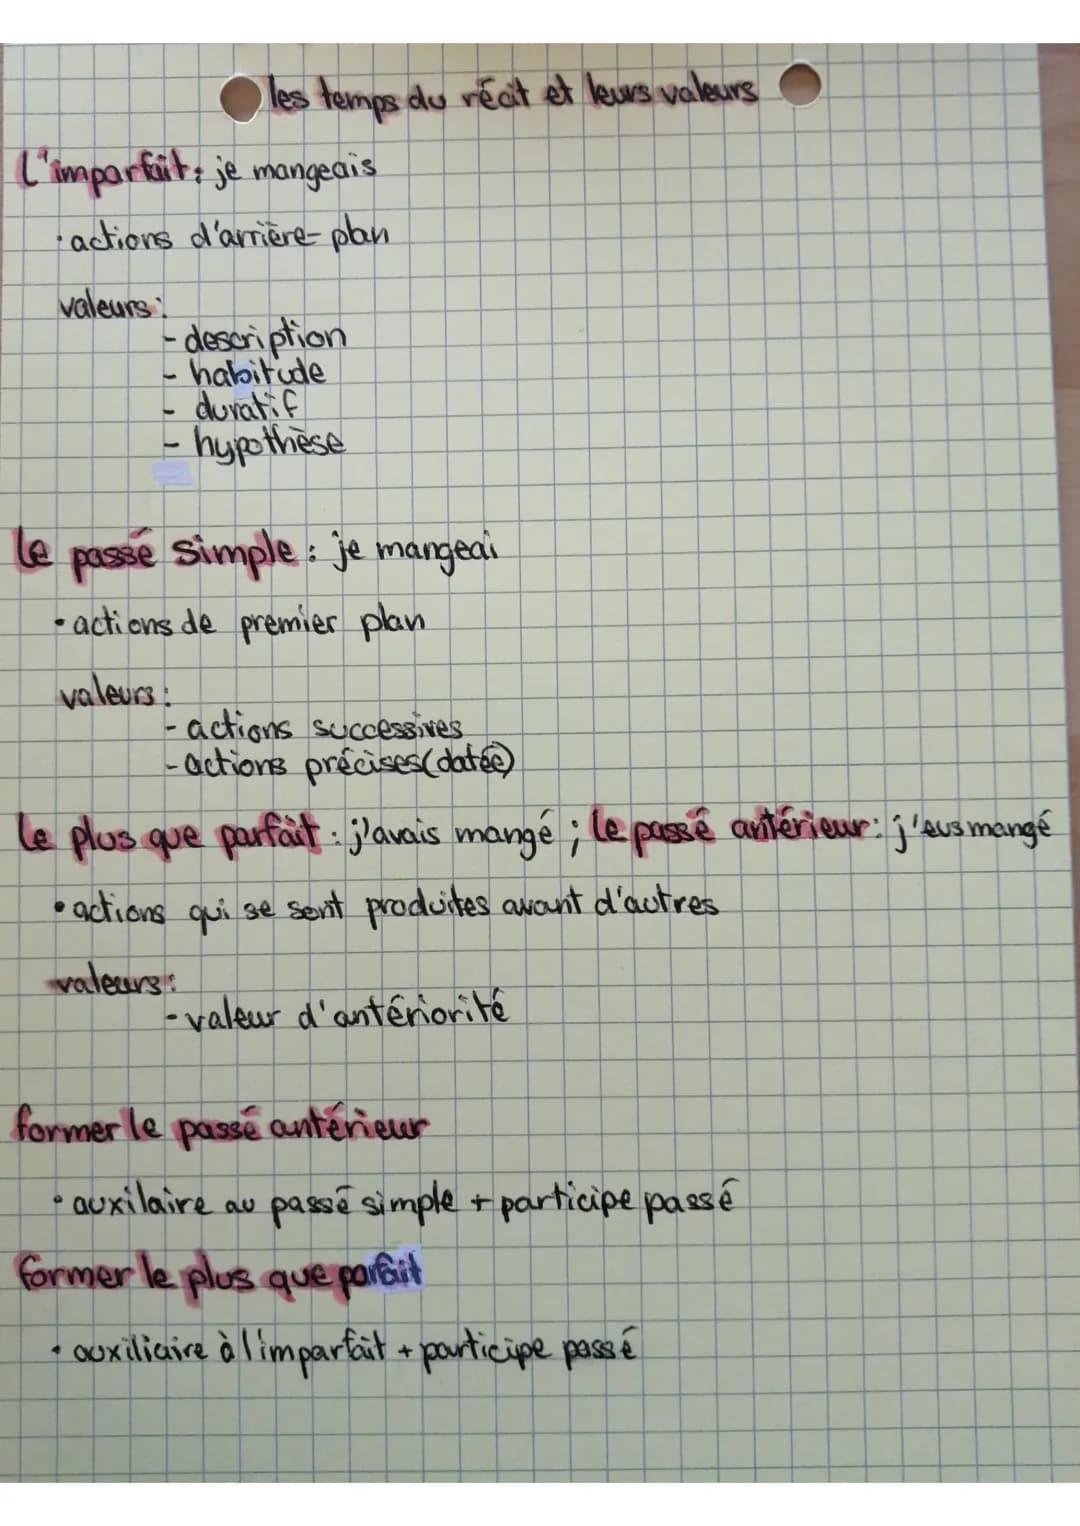 les temps du récit et leurs valeurs
L'imparfait : je mangeais
• actions d'arrière-plan
valeurs :
- description
- habitude
- duratif
- hypothèse
le passé simple : je mangeai
• actions de premier plan
valeurs :
- actions successives
- actions précises (datée)
le plus que parfait : j'avais mangé ; le passé antérieur : j'eus mangé
• actions qui se sont produites avant d'autres
valeurs :
- valeur d'antériorité
former le passé antérieur
• auxilaire au passé simple + participe passé
former le plus que parfait
• auxiliaire à l'imparfait + participe passé